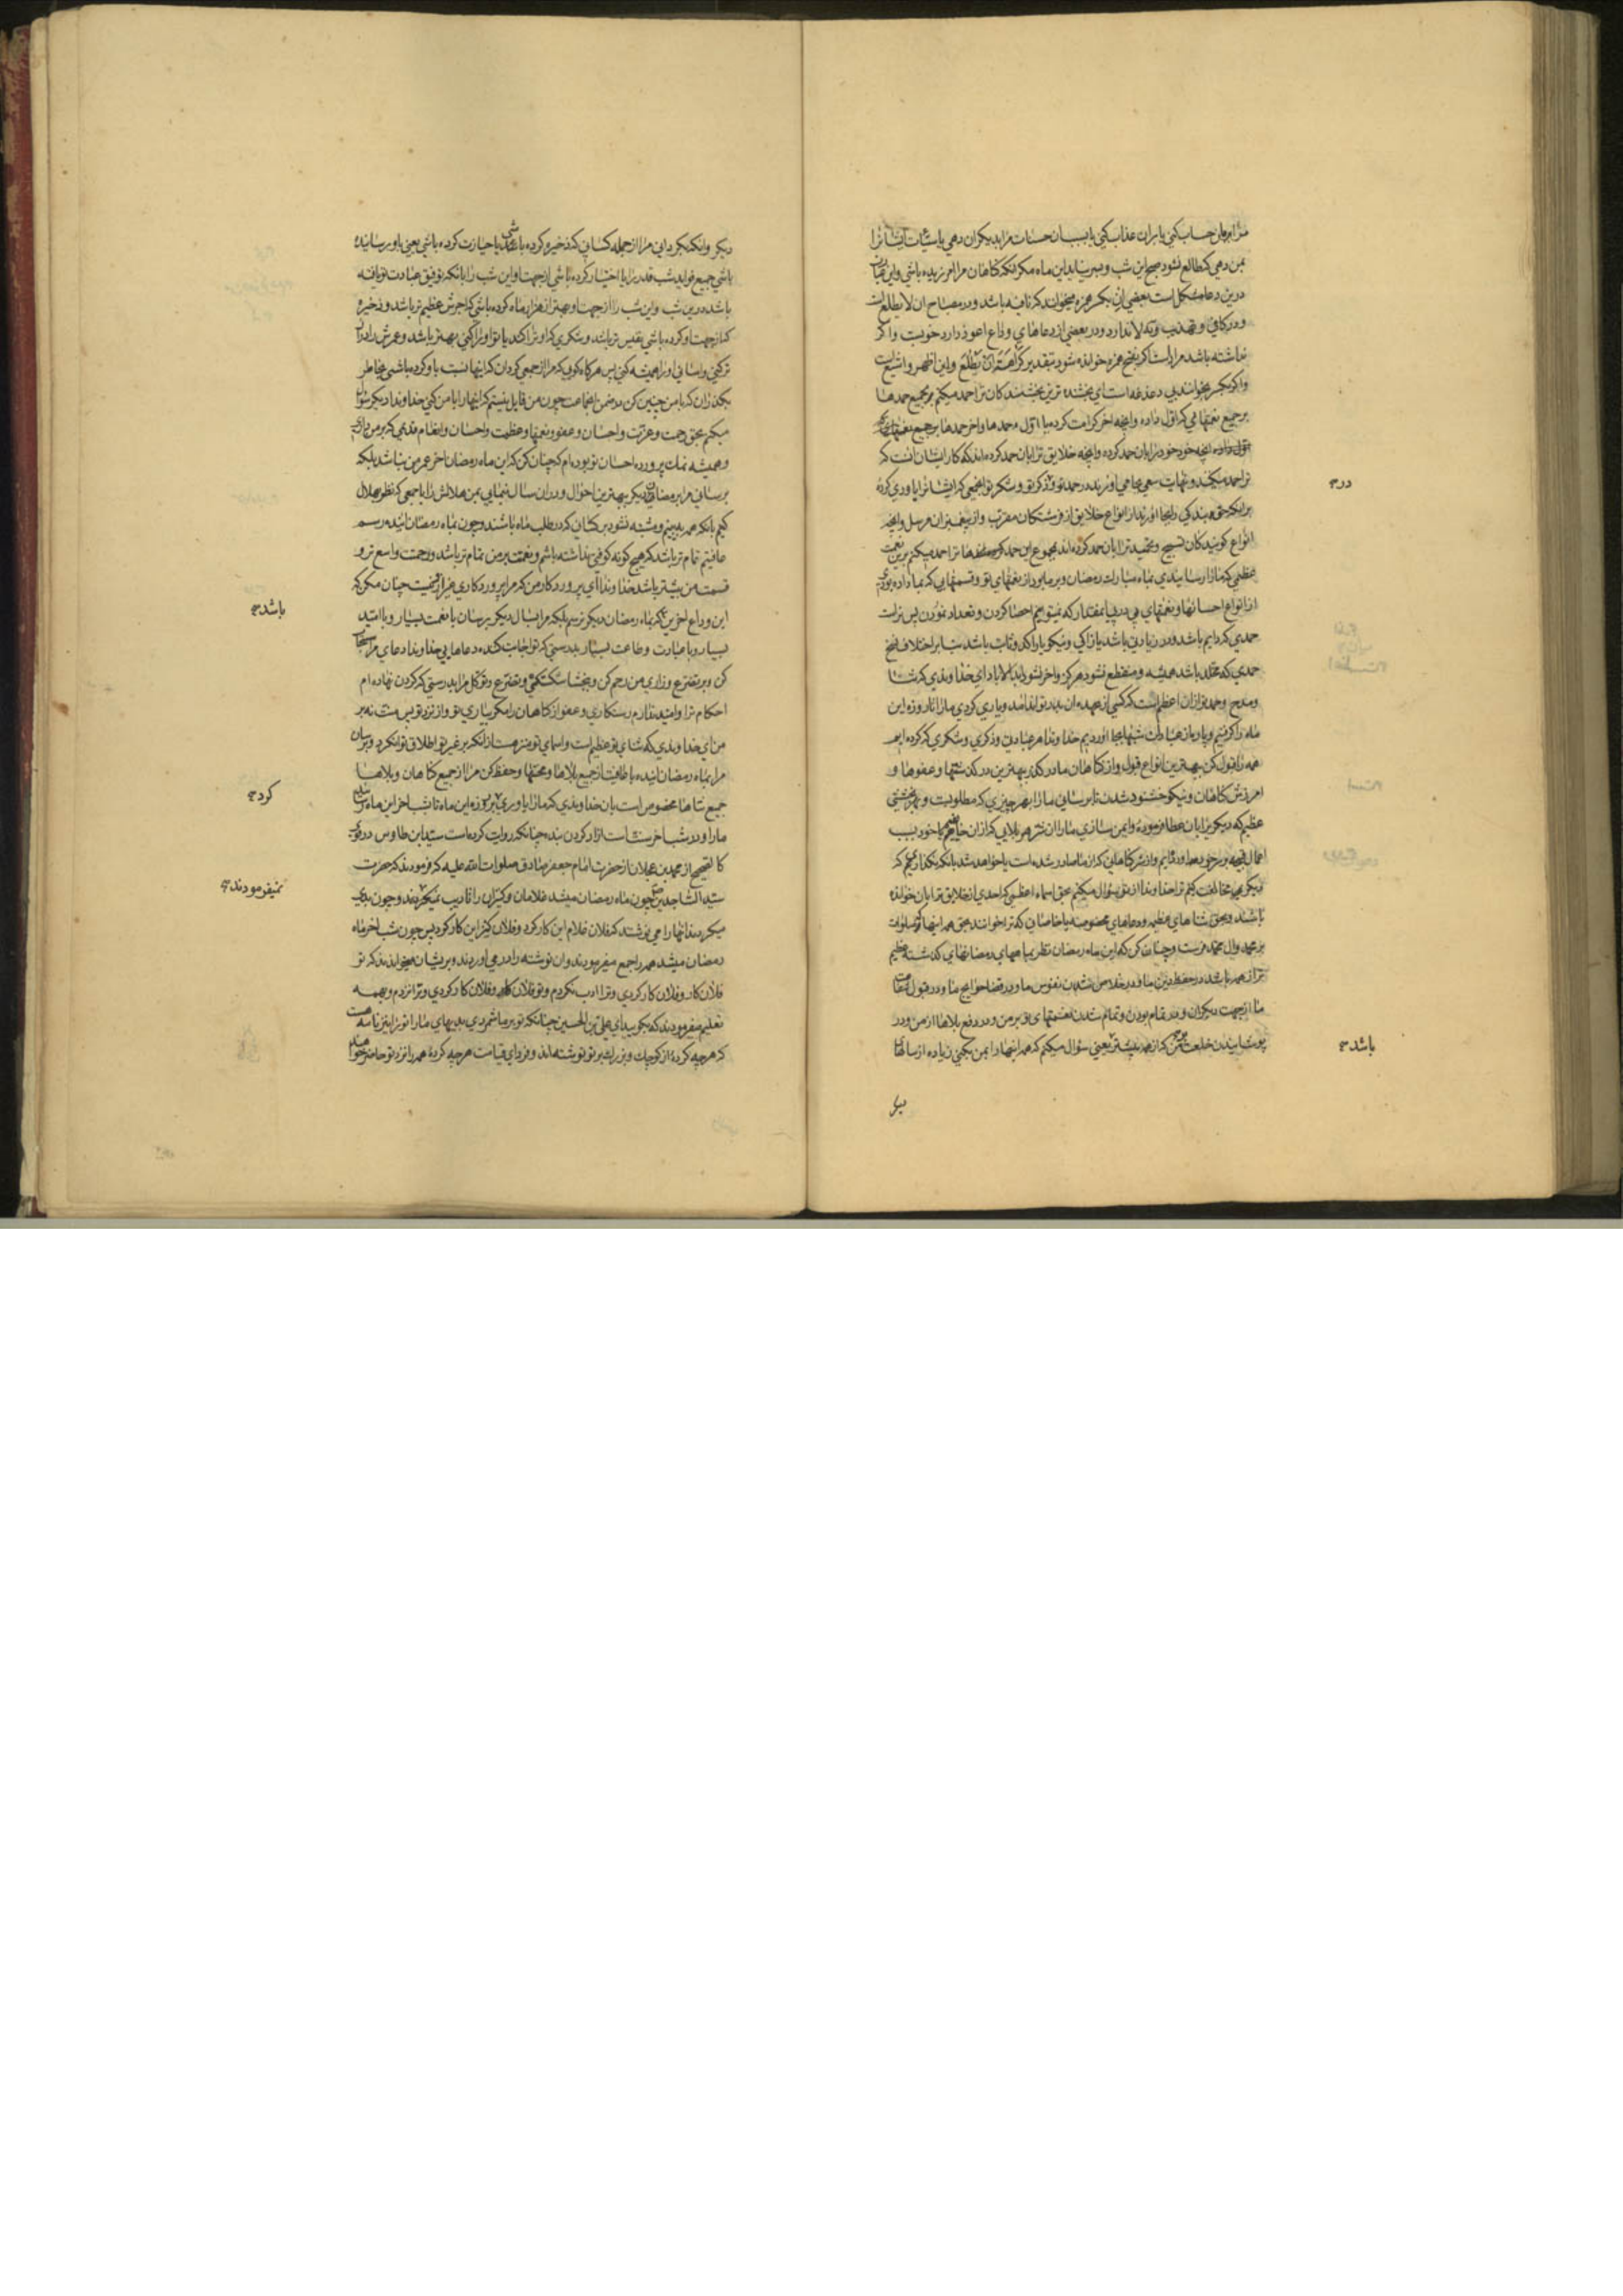 مرا بر آن حساب کنی یا بر آن عذاب کنی یا بسبب آن حسنات مرا بدیکران دهی یا سیئات ایشانرا
بمن دهی که طالع نشود صبح این شب و بسر نیاید این ماه مکر آنکه کناهان مرا آمرزیده باشی و این
درین دعا مشکل است بعضی ان بکسر همزه میخوانند که نافیه باشد و در مصباح ان لا یطلع است
و در کافی و تهذیب و فقیه لا ندارد و در بعضی از دعاهای وداع اعوذ دارد خوبست و اکر
نداشته باشد مراد آنست اکر بفتح همزه خوانده شود بتقدیر کراهة ان یطلع و این اظهر و اشیع است
و اکر بکسر بخوانند بی دغدغه است ای بخشنده ترین بخشندکان ترا حمد میکنم بر جمیع حمدها
بر جمیع نعمتهایی که اول داده و آنچه آخر کرامت کرده با اول حمدها و آخر حمدها بر جمیع نعمتهای
آنچه خود خود را بآن حمد کرده و آنچه خلایق ترا بآن حمد کرده‌اند که کار ایشان آنست که
ترا حمد میکنند و نهایت سعی بجا می آورند در حمد تو و ذکر تو و شکر تو آنجمعی که ایشانرا یاوری کرده
در
بر آنکه حق بندکی را بجا آورند از انواع خلایق از فرشتکان مقرب و از پیغمبران مرسل و آنچه
انواع کویندکان تسبیح و تحمید ترا بآن حمد کرده‌اند بمجموع این حمدها ترا حمد میکنم برین نعمت
عظمی که ما را رسانیدی بماه مبارک رمضان و بر ما بود از نعمتهای تو و قسمتهایی که بما داده بودی
از انواع احسانها و نعمتهای پی در پی بآنمقدار که نمیتوانیم احصا کردن و تعداد نمودن پس تراست
حمدی که دایم باشد و در زیادتی باشد
حمدی که مخلد باشد همیشه و منقطع نشود هرکز و آخر نشود ابد الآباد ای خداوندی که ثنا
و مدح و حمد تو از آن اعظم است که کسی از عهده آن بدر تواند آمد و یاری کردی ما را تا روزه این
ماه را کرفتیم و پاره از عبادات شبها بجا آوردیم خداوندا هر عبادتی و ذکری و شکری که کرده ایم
همه را قبول کن بهترین انواع قبول و از کناهان ما در کذر بهترین در کذشتها و عفوها و
آمرزش کناهان و نیکو خشنود شدن تا برسانی ما را بهر چیزی که مطلوبست و بهر بخششی
عظیم که دیکرانرا بآن عطا فرموده و ایمن سازی ما را از شر هر بلایی که از آن خایفیم یا خود بسبب
اعمال قبیحه بر خود
دیکر مخالفت کنیم ترا خداوندا از تو سؤال میکنم بحق اسماء اعظمی که احدی از خلایق ترا بآن خوانده
باشند و بحق ثناهای عظیمه و دعاهای مخصوصه یا خاصانی که ترا خوانند بحق همه اینها که صلوات
بر محمد و آل محمد فرست و چنان کن که این ماه رمضان نظر بما همهای رمضانهای کذشته عظیم
تر از همه باشد در حفظ دین ما و در خلاص شدن نفوس ما و در قضا حوایج ما و در قبول شفاعت
ما از جهت دیکران و در تمام بودن و تمام شدن نعمتهای تو بر من و در دفع بلاها از من و در
پوشانیدن خلعت بر من که از همه بیشتر یعنی سؤال میکنم که همه اینها را بمن بکنی زیاده از سالهای
باشد
دیکر
دیکر و آنکه بکردانی مرا از جمله کسانی که ذخیره کرده باشی یا حیازت کرده باشی یعنی باو رسانیده
باشی جمیع فواید شب قدر را یا اختیار کرده باشی از جهت او این شب را بآنکه توفیق عبادت تو یافته
باشد درین شب و این شب را از جهت او بهتر از هزار ماه کرده باشی که اجرش عظیم تر باشد و ذخیره
که از جهت او کرده باشی نفیس تر باشد و شکری که او ترا کند یا تو او را کنی بهتر باشد و عمرش را دراز
تر کنی و آسانی او را همیشه کنی پس هرکاه کوید که مرا از جمعی کردان که اینها نسبت باو کرده باشی بخاطر
بکذران که با من چنین کن در ضمن آنجماعت چون من قابل نیستم که اینها را با من کنی خداوندا دیکر سؤال
میکنم بحق رحمت و عزتت و احسان و عفو و نعمتها و عظمت و احسان و انعام قدیمی که بر من داری
و همیشه نمک پرورده احسان تو بوده ام که چنان کن که این ماه رمضان آخر عمر من نباشد بلکه
برسانی مرا برمضان دیکر بهترین احوال و در آن سال بنمایی بمن هلالش را با جمعی که نظر بهلال
کنیم بآنکه همه ببینیم و مشتبه نشود بر کسانی که در طلب ماه باشند و چون بماه رمضان آینده رسم
عافیتم تمام تر باشد که هیچ کونه کوفتی نداشته باشم و نعمتت بر من تمام تر باشد و رحمتت واسع تر و
قسمت من بیشتر باشد خداوندا ای پروردکار من که مرا پروردکاری غیر از تو نیست چنان مکن که
این وداع آخرین که بماه رمضان دیکر نرسم بلکه مرا بسال دیکر برسان با نعمت بسیار و با امید
باشد
بسیار و با عبادت و طاعت بسیار بدرستی که تو اجابت کننده دعاهایی خداوندا دعای مرا مستجاب
کن و بر تضرع و زاری من رحم کن و ببخشا شکستکی و تضرع و توکل مرا بدرستی که کردن نهاده ام
احکام ترا و امید ندارم رستکاری و عفو از کناهان را مکر بیاری تو و از نزد تو پس منت نه بر
من ای خداوندی که ثنای تو عظیم است و اسمای تو منزهست از آنکه بر غیر تو اطلاق توان کرد و برسان
مرا بماه رمضان آینده با عافیت از جمیع بلاها و محنتها و حفظ کن مرا از جمیع کناهان و بلاها
جمیع ثناها مخصوص است بآن خداوندی که ما را یاوری کرد بر روزه این ماه تا شب آخر این ماه رسانید
کرد
ما را و در شب آخر سنت است آزاد کردن بنده چنانکه روایت کرده است سید ابن طاوس در قوی
کالصحیح از محمد بن عجلان از حضرت امام جعفر صادق صلوات الله علیه که فرمودند که حضرت
سید الساجدین چون ماه رمضان میشد غلامان و کنیزان را تادیب نمیکردند و چون بدی
نمیفرمودند
میکردند آنها را می نوشتند که فلان غلام این کار کرد و فلان کنیز این کار کرد پس چون شب آخر ماه
رمضان میشد همه را جمع میفرمودند و آن نوشته را در می آوردند و بر ایشان میخواندند که تو
فلان کار و فلان کار کردی و ترا ادب نکردم و تو فلان کار و فلان کار کردی و ترا نزدم و بهمه
تعلیم میفرمودند که بکویید ای علی بن الحسین چنانکه تو بر ما شمردی بدیهای ما را تو را نیز نامه هست
که هر چه کرده از کوچک و بزرک بر تو نوشته اند و فردای قیامت هر چه کرده همه را نزد تو حاضر خواهند